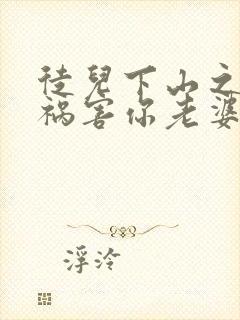 徒儿下山之
祸害你老婆
浮泠